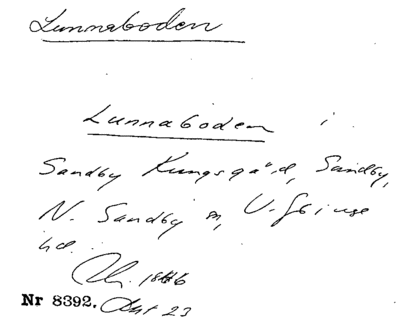 Lunnaboden
Lunnaboden i
Sandby Kungsgård, Sandby,
N. Sandby sn, V. Göinge
hd.
Nr 8392.